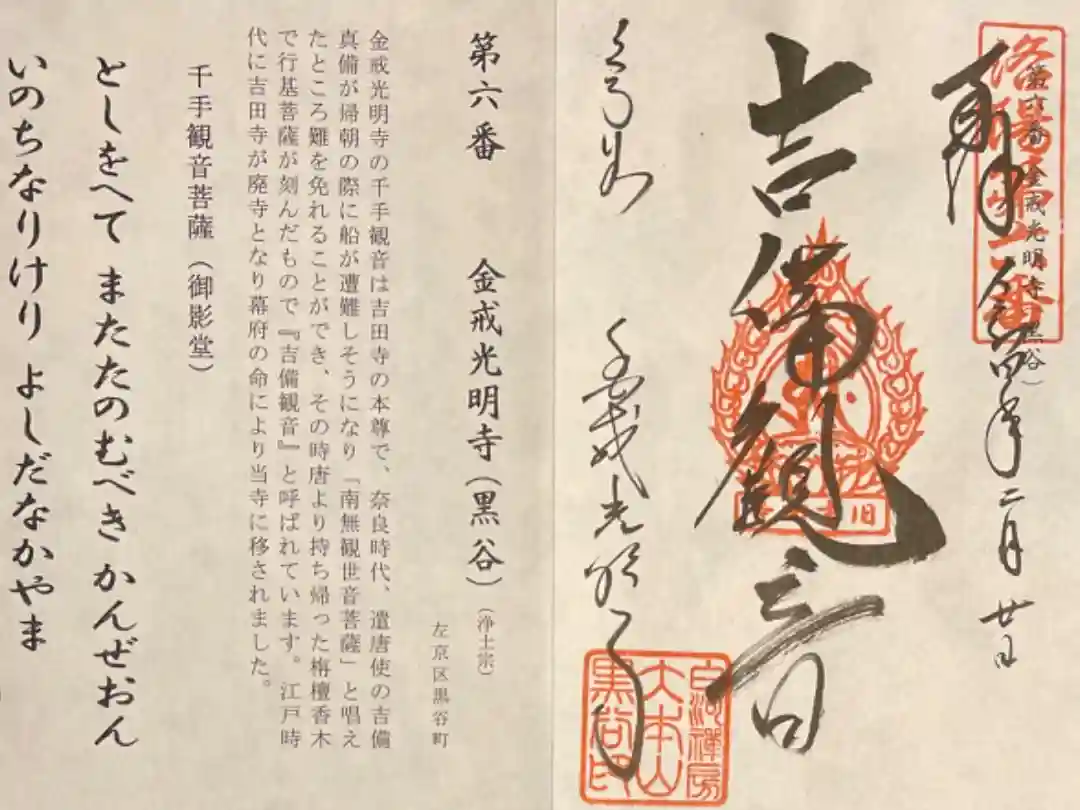 奉拝
令和四年二月廿日
洛陽第六番
第六番 金戒光明寺(黒谷)
吉備観音
くろ谷
金戒光明寺
白河禅房
大本山
黒谷印
第六番 金戒光明寺(黒谷)(浄土宗)
左京区黒谷町
金戒光明寺の千手観音は吉田寺の本尊で、奈良時代、遣唐使の吉備
真備が帰朝の際に船が遭難しそうになり「南無観世音菩薩」と唱え
たところ難を免れることができ、その時唐より持ち帰った栴檀香木
で行基菩薩が刻んだもので『吉備観音』と呼ばれています。江戸時
代に吉田寺が廃寺となり幕府の命により当寺に移されました。
千手観音菩薩(御影堂)
としをへて またたのむべき かんぜおん
いのちなりけり よしだなかやま